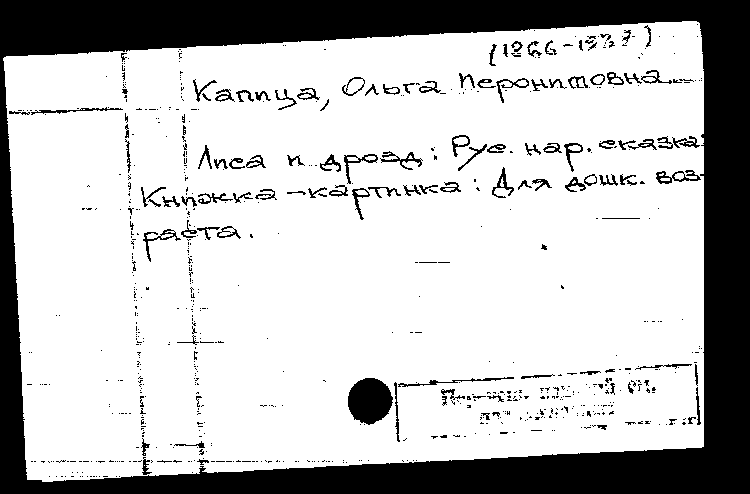 (1866-1937)
Капица, Ольга Иеронимовна
Лиса и дрозд: Рус. нар. сказка:
Книжка-картинка: Для дошк. воз-
раста.
см.